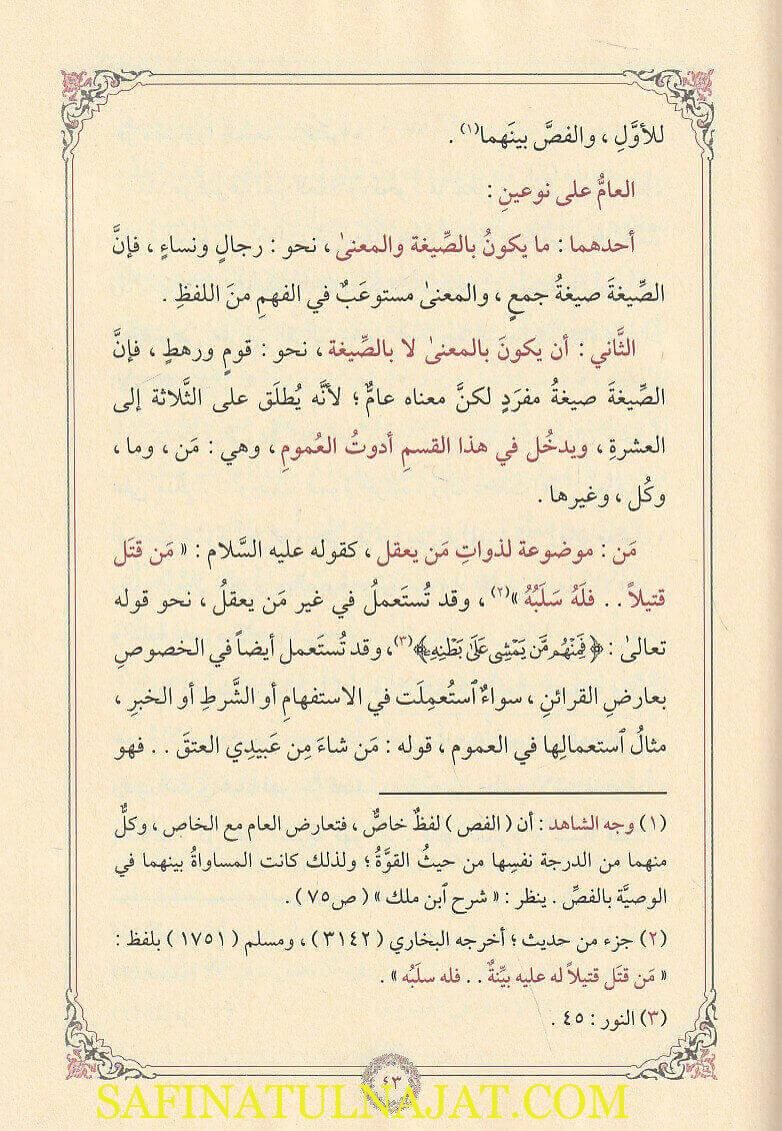 للأوَّلِ ، والفصَّ بينَهما(١) .
العامُّ على نوعينِ :
أحدهما : ما يكونُ بالصِّيغة والمعنىٰ ، نحو : رجالٍ ونساءٍ ، فإنَّ
الصِّيغةَ صيغةُ جمعٍ ، والمعنىٰ مستوعَبٌ في الفهمِ منَ اللفظِ .
الثَّاني : أن يكونَ بالمعنىٰ لا بالصِّيغة ، نحو : قومٍ ورهطٍ ، فإنَّ
الصِّيغةَ صيغةُ مفرَدٍ لكنَّ معناه عامٌّ ؛ لأنَّه يُطلَق على الثَّلاثة إلى
العشرةِ ، ويدخُل في هذا القسمِ أدوتُ العُمومِ ، وهي : مَن ، وما ،
وكُل ، وغيرها .
مَن : موضوعة لذواتِ مَن يعقل ، كقوله عليه السَّلام : « مَن قتَل
قتيلاً . . فلَهُ سَلَبُهُ »(٢) ، وقد تُستَعملُ في غير مَن يعقلُ ، نحو قوله
تعالىٰ : ﴿فَمِنْهُم مَّن يَمْشِى عَلَىٰ بَطْنِهِۦ﴾(٣) ، وقد تُستَعمل أيضاً في الخصوصِ
بعارضِ القرائنِ ، سواءٌ ٱستُعمِلَت في الاستفهامِ أو الشَّرطِ أو الخبرِ ،
مثالُ ٱستعمالِها في العموم ، قوله : مَن شاءَ مِن عَبيدِي العتقَ . . فهو
(١) وجه الشاهد : أن ( الفص ) لفظٌ خاصٌّ ، فتعارض العام مع الخاص ، وكلٌّ
منهما من الدرجة نفسِها من حيثُ القوَّةُ ؛ ولذلك كانت المساواةُ بينهما في
الوصيَّة بالفصِّ . ينظر : « شرح ٱبن ملك » ( ص٧٥ ) .
(٢) جزء من حديث ؛ أخرجه البخاري ( ٣١٤٢ ) ، ومسلم ( ١٧٥١ ) بلفظ :
« مَن قتَل قتيلاً له عليه بيِّنةٌ . . فله سلَبُه » .
(٣) النور : ٤٥ .
٤٣
SAFINATULNAJAT.COM